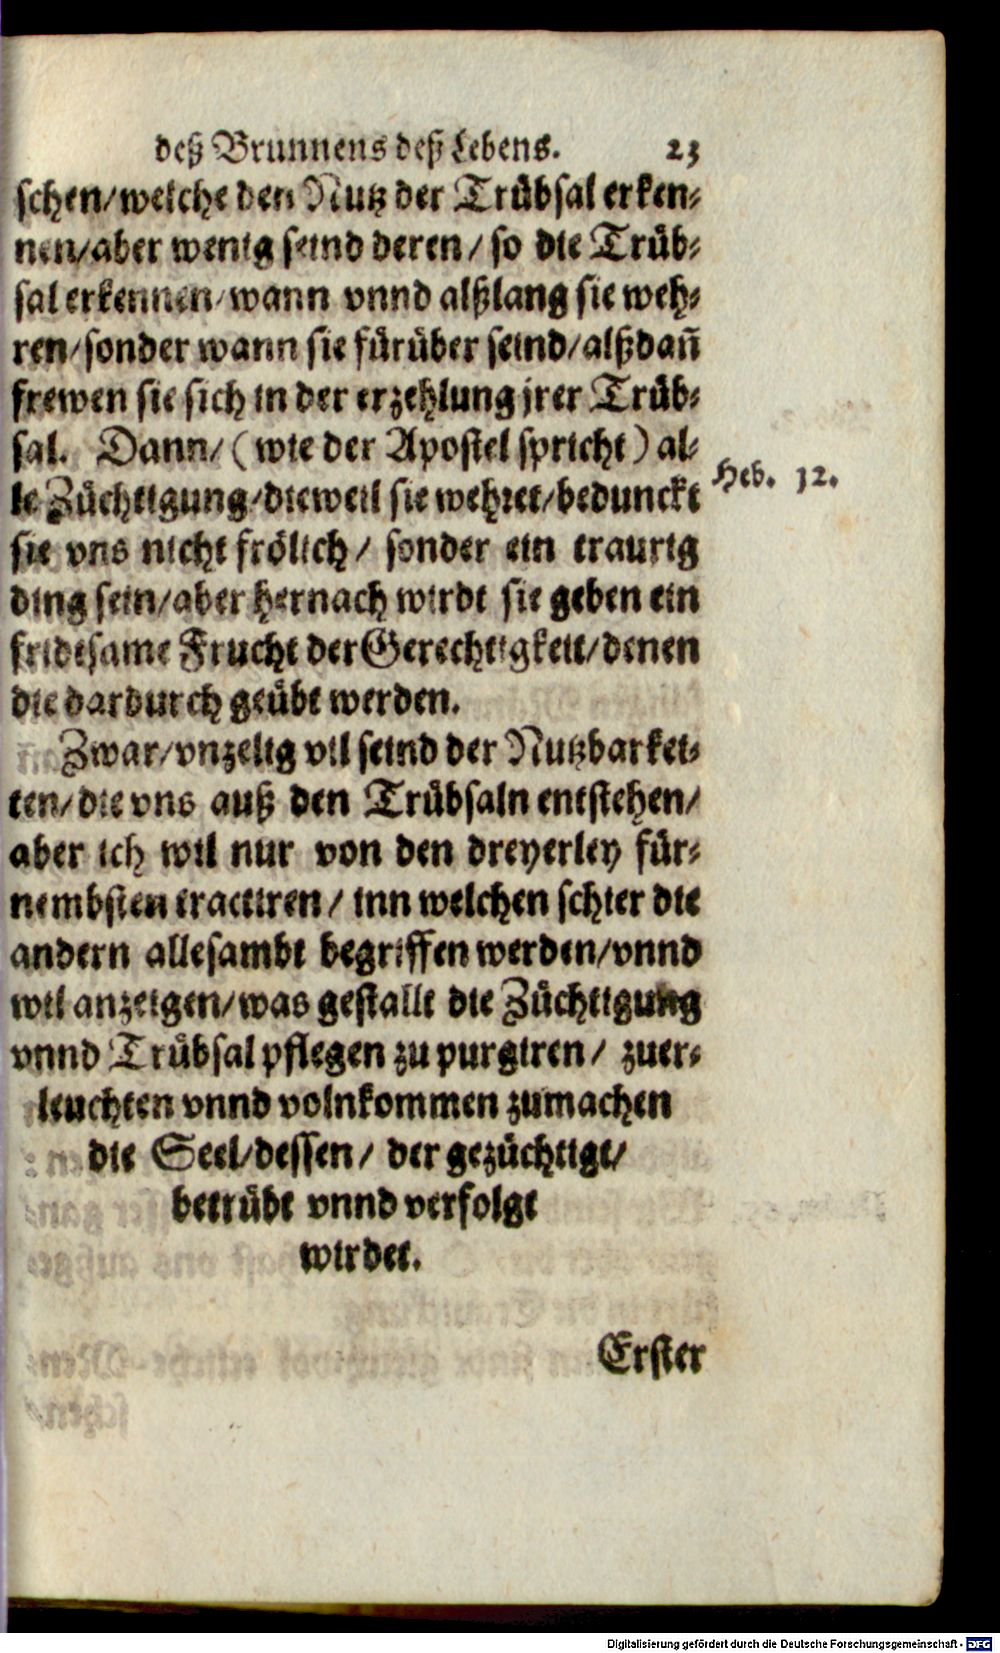 deß Brunnens deß Lebens. 23
schen/welche den Nutz der Trübsal erken-
nen/aber wenig seind deren/ so die Trüb-
sal erkennen/wann vnnd alßlang sie weh-
ren/sonder wann sie fürüber seind/alßdañ
frewen sie sich in der erzehlung jrer Trüb-
sal. Dann/ (wie der Apostel spricht) al-
le Züchtigung/dieweil sie wehret/beduncket
Heb. 12.
sie vns nicht frölich/ sonder ein traurig
ding sein/aber hernach wirdt sie geben ein
fridtsame Frucht der Gerechtigkeit/denen
die dardurch geübt werden.
Zwar/vnzelig vil seind der Nutzbarkei-
ten/die vns auß den Trübsaln entstehen/
aber ich wil nur von den dreyerley für-
nembsten tractiren/ inn welchen schier die
andern allesambt begriffen werden/vnnd
wil anzeigen/was gestallt die Züchtigung
vnnd Trübsal pflegen zu purgiren/ zuer-
leuchten vnnd volnkommen zumachen
die Seel/dessen/ der gezüchtigt/
betrübt vnnd verfolgt
wirdet.
Erster
Digitalisierung gefördert durch die Deutsche Forschungsgemeinschaft - DFG